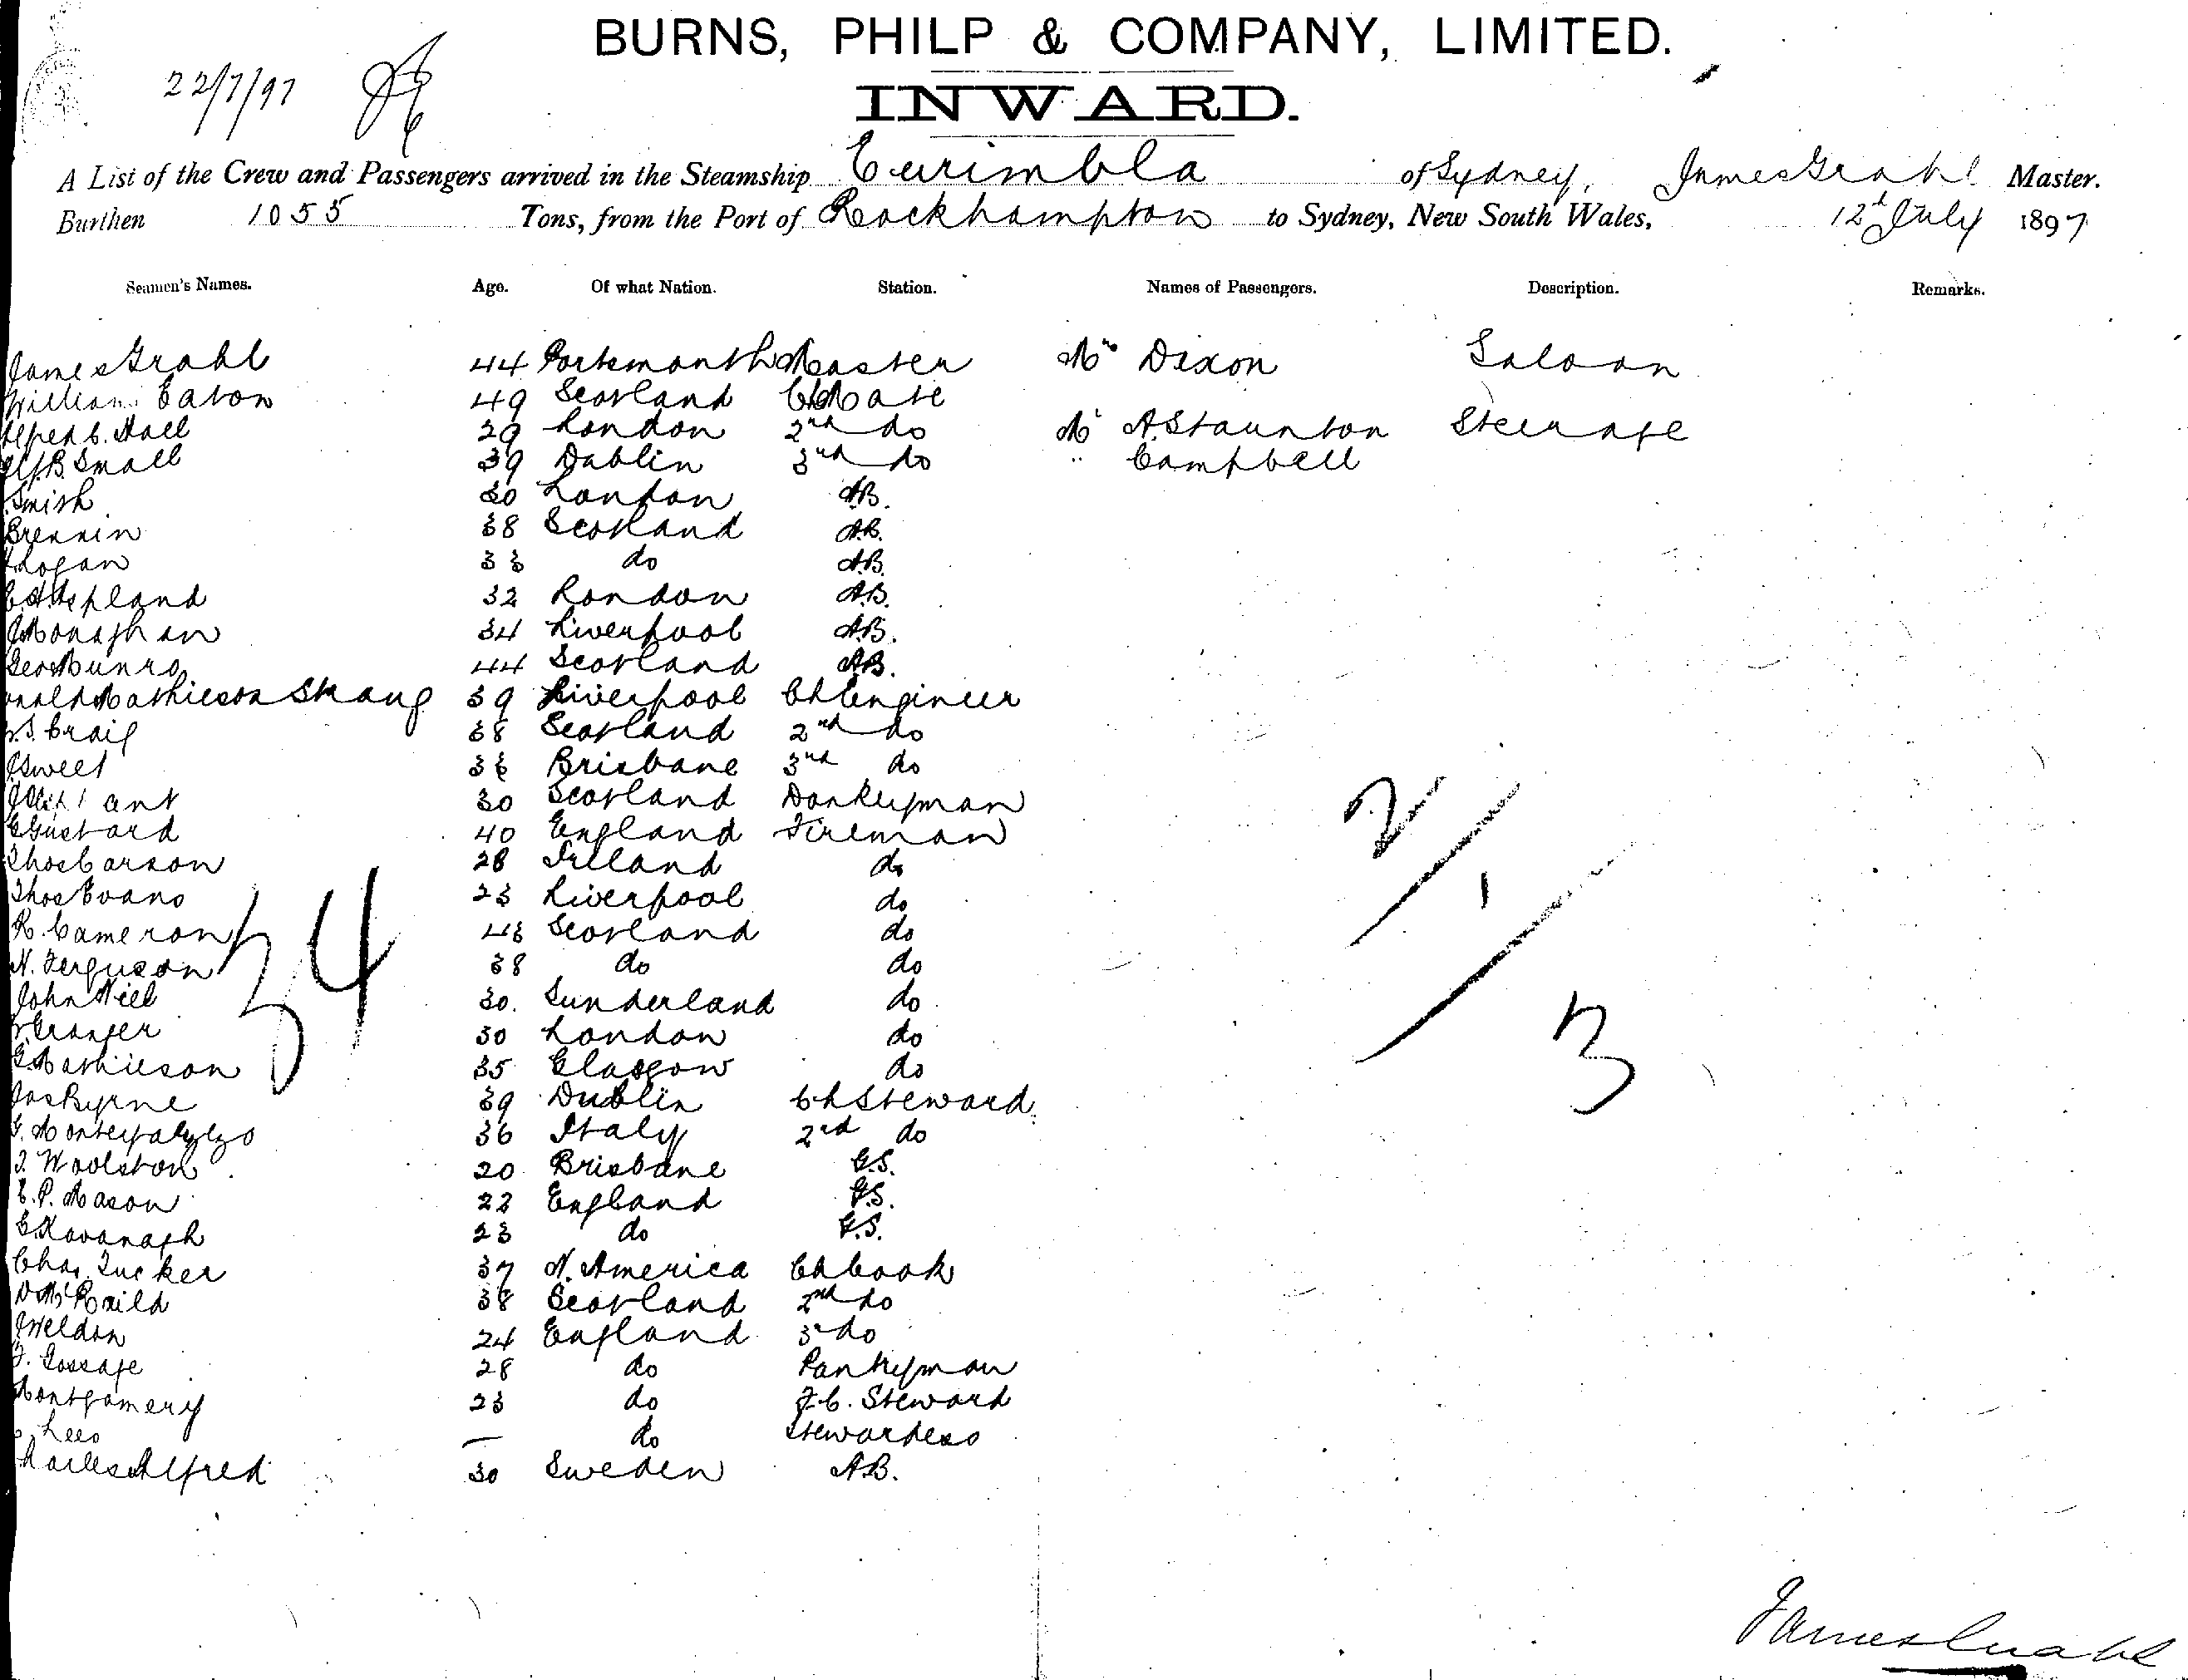 BURNS, PHILP & COMPANY, LIMITED.
22/7/97
INWARD.
A List of the Crew and Passengers arrived in the Steamship Curimbla of Sydney, James Grahl Master.
Burthen 1055 Tons, from the Port of Rockhampton to Sydney, New South Wales, 12th July 1897
Seamen's Names. Age. Of what Nation. Station. Names of Passengers. Description. Remarks.
James Grahl 44 Portsmouth Master Mrs Dixon Saloon
William Eaton 49 Scotland Ch Mate
Alfred C. Hall 29 London 2nd do Mr A. Staunton Steerage
B Small 39 Dublin 3rd do " Campbell
Smith 30 London A.B.
Brennin 38 Scotland A.B.
Logan 33 do A.B.
32 London A.B.
J Monaghan 34 Liverpool A.B.
Geo Munro 44 Scotland A.B.
Mathieson Strang 39 Liverpool Ch Engineer
S. Craig 38 Scotland 2nd do
J Sweet 36 Brisbane 3rd do
30 Scotland Donkeyman
C Gustard 40 England Fireman
Thos Carson 28 Ireland do
Thos Evans 23 Liverpool do
K. Cameron 43 Scotland do
N. Ferguson 38 do do
John Niel 30. Sunderland do
Granger 30 London do
G Mathieson 35 Glasgow do
Jas Byrne 39 Dublin Ch Steward
G. 36 Italy 2nd do
J. Woolston 20 Brisbane G.S.
E. P. Mason 22 England G.S.
C. Kavanagh 23 do G.S.
Chas. Tucker 37 N. America Ch Cook
D McRaild 38 Scotland 2nd do
J Weldon 24 England 3rd do
F. Gossage 28 do Pantryman
Montgomery 23 do F.C. Steward
Lees — do Stewardess
Charles Alfred 30 Sweden A.B.
34
2/
1/
3
James Grahl